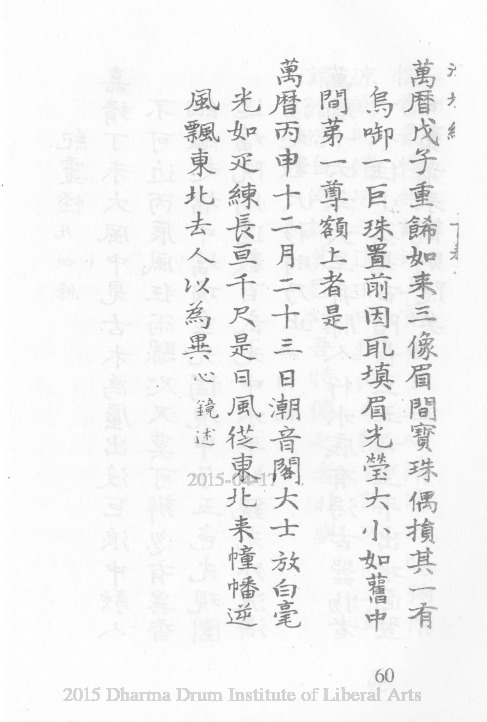 萬曆戊子重餙如来三像眉間寶珠偶損其一有
烏啣一巨珠置前因取填眉光瑩大小如舊中
間第一尊額上者是
萬曆丙申十二月二十三日潮音閣大士放白毫
光如疋練長亘千尺是日風從東北来幢幡逆
風飄東北去人以為異心鏡述
2015-04-17
60
2015 Dharma Drum Institute of Liberal Arts